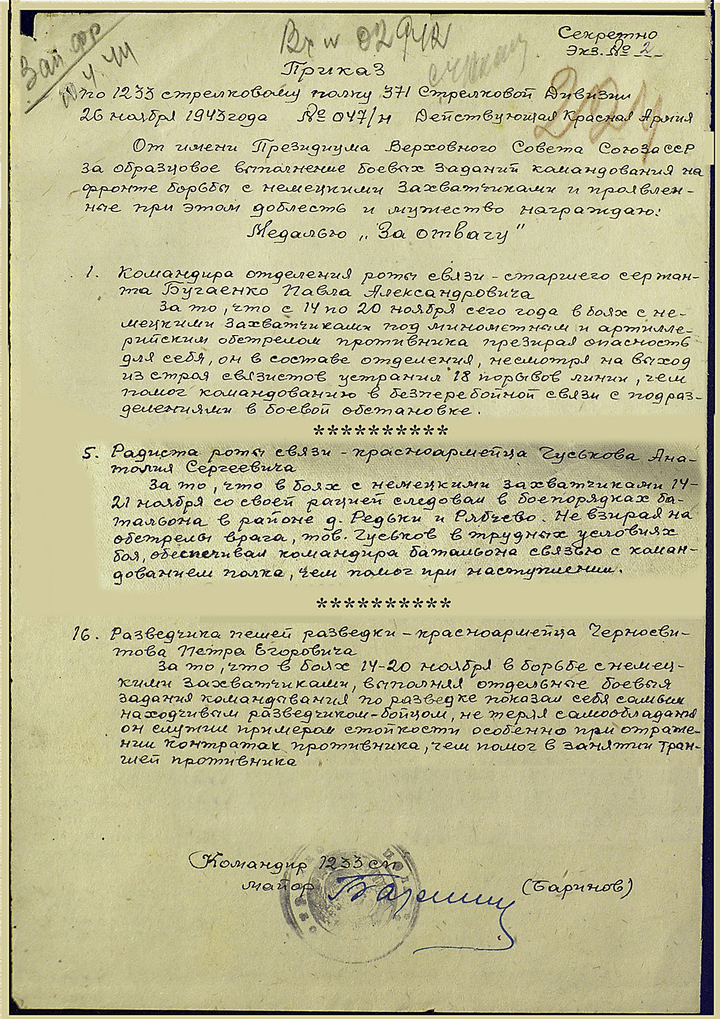 Вх № 02942
Секретно
Экз. № 2
Приказ
по 1233 стрелковому полку 371 Стрелковой Дивизии
26 ноября 1943 года № 047/н Действующая Красная Армия
От имени Президиума Верховного Совета Союза ССР
за образцовое выполнение боевых заданий командования на
фронте борьбы с немецкими захватчиками и проявлен-
ные при этом доблесть и мужество награждаю:
Медалью „За отвагу"
1. Командира отделения роты связи - старшего сержан-
та Бугаенко Павла Александровича
За то, что с 14 по 20 ноября сего года в боях с не-
мецкими захватчиками под минометным и артилле-
рийским обстрелом противника презирая опасность
для себя, он в составе отделения, несмотря на выход
из строя связистов устранил 18 порывов линии, чем
помог командованию в безперебойной связи с подраз-
делениями в боевой обстановке.
**********
5. Радиста роты связи - красноармейца Гуськова Ана-
толия Сергеевича
За то, что в боях с немецкими захватчиками 14-
21 ноября со своей рацией следовал в боепорядках ба-
тальона в районе д. Редьки и Рябчево. Не взирая на
обстрелы врага, тов. Гуськов в трудных условиях
боя, обеспечивал командира батальона связью с коман-
дованием полка, чем помог при наступлении.
**********
16. Разведчика пешей разведки - красноармейца Черноеви-
това Петра Егоровича
За то, что в боях 14-20 ноября в борьбе с немец-
кими захватчиками, выполняя отдельные боевыя
задания командывания по разведке показал себя самым
находчивым разведчиком-бойцом, не теряя самообладания
он служил примером стойкости особенно при отраже-
нии контратак противника, чем помог в занятии тран-
шей противника
Командир 1233 сп
майор (Баринов)